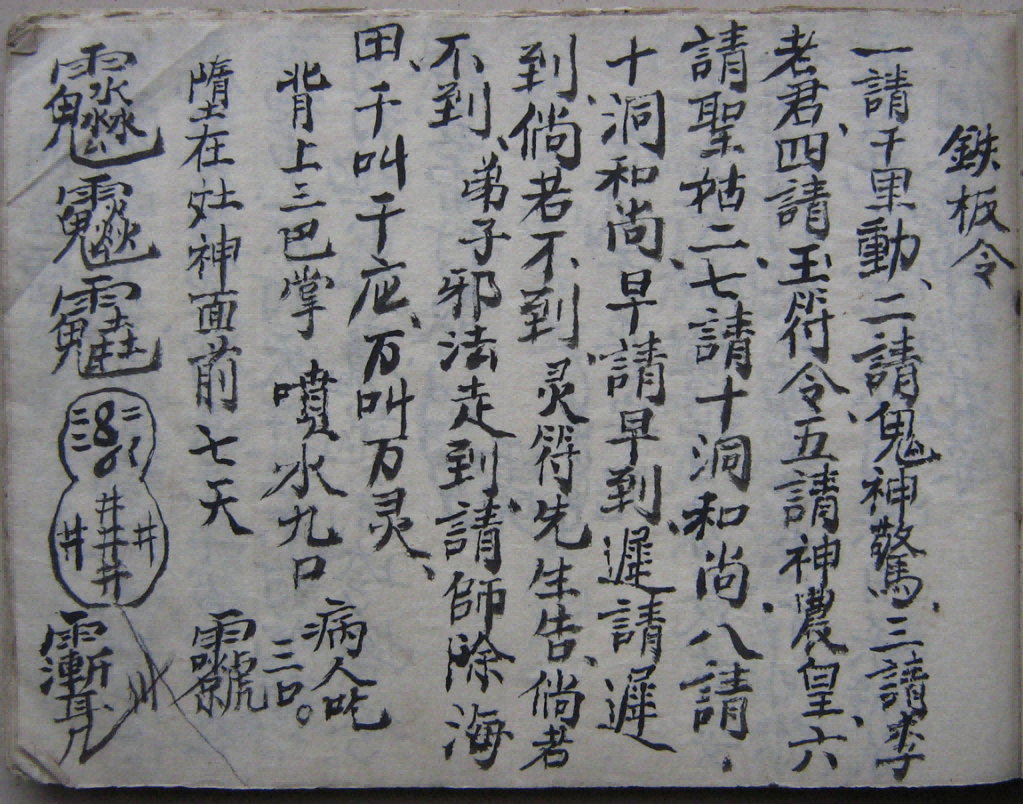 鉄板令
一請千里動、二請鬼神驚、三請李
老君、四請玉符令、五請神農皇、六
請聖姑、二七請十洞和尚、八請、
十洞和尚、早請早到、遲請遲
到、倘若不到、灵符先生告、倘若
不到、弟子邪法走到、請師除海
田、千叫千应、万叫万灵、
背上三巴掌 噴水九口 病人吃三口。
墮在灶神面前七天
井井井井井